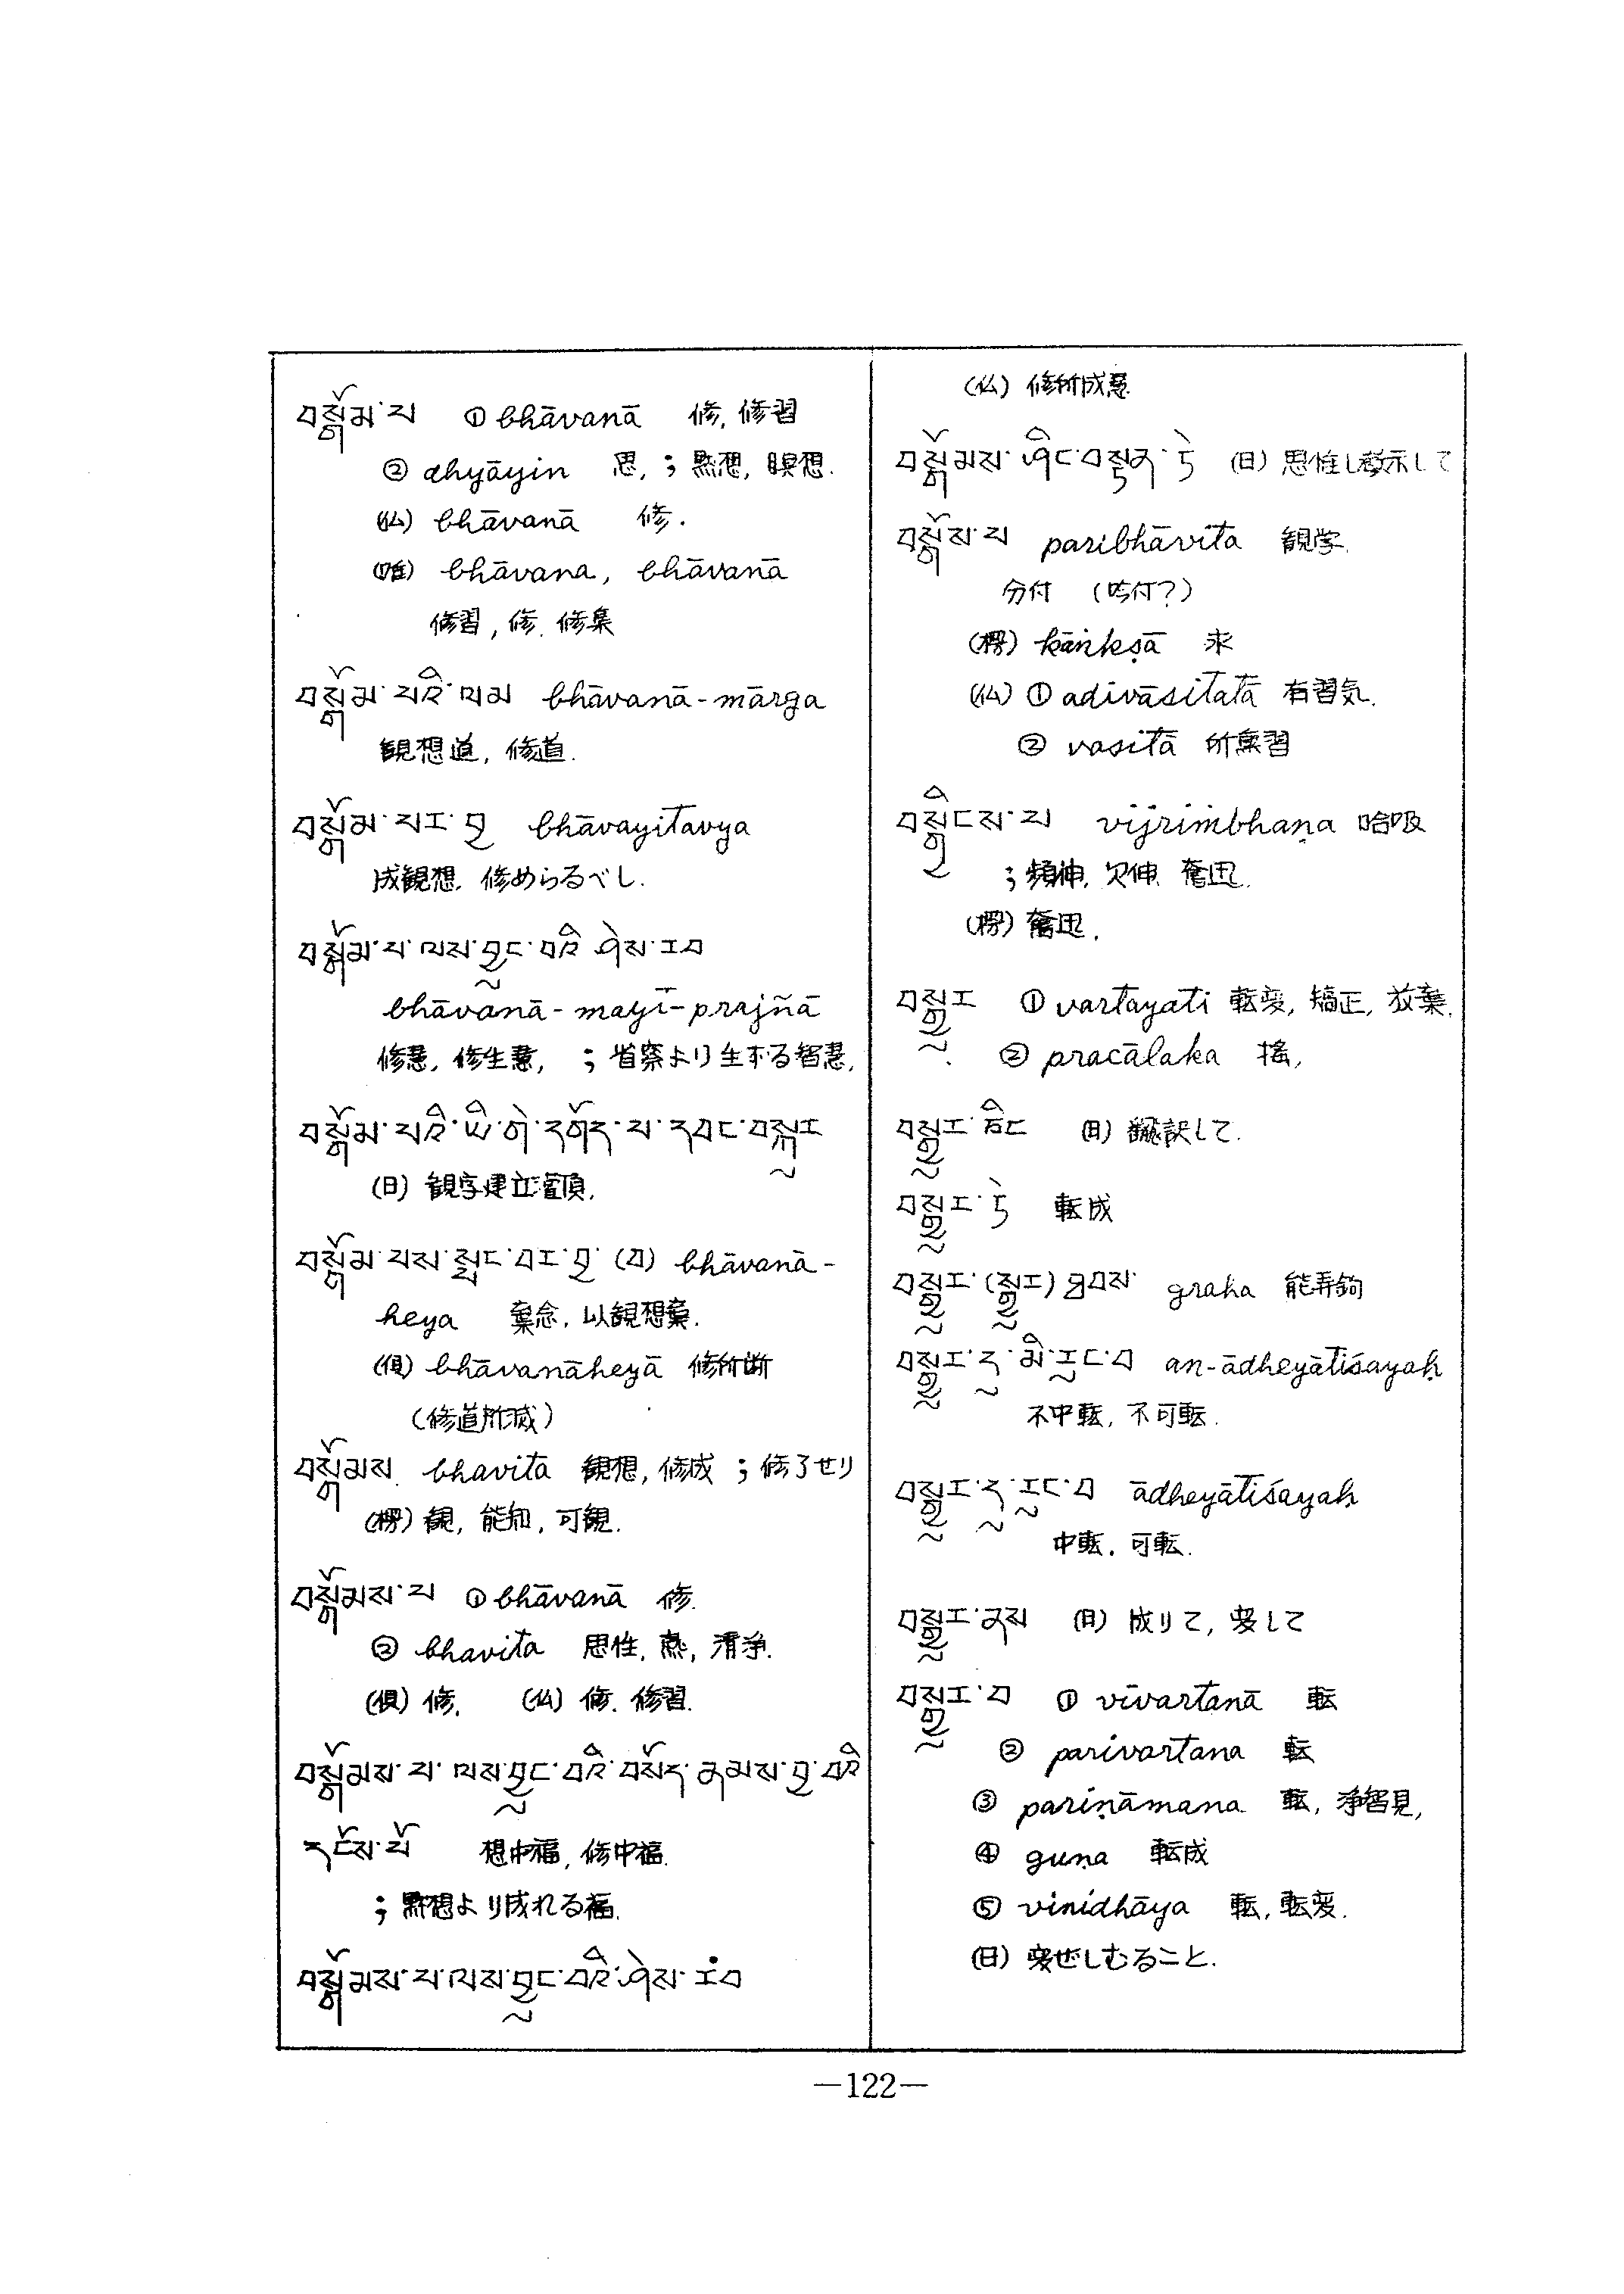 བསྒོམ་པ ① bhāvanā 修, 修習
② dhyāyin 思, ; 黙想, 瞑想.
(仏) bhāvanā 修.
(唯) bhāvana, bhāvanā
修習, 修. 修集
བསྒོམ་པའི་ལམ bhāvanā-mārga
観想道, 修道.
བསྒོམ་པར་བྱ bhāvayitavya
成観想, 修めらるべし.
བསྒོམ་པ་ལས་བྱུང་བའི་ཤེས་རབ
bhāvanā-mayī-prajñā
修慧, 修生慧, ; 省察より生ずる智慧,
བསྒོམ་པའི་ཡི་གེ་དགོད་པ་དབང་བསྐུར
(日) 観字建立灌頂.
བསྒོམ་པས་སྤང་བར་བྱ་(བ) bhāvanā-
heya 棄念, 以観想棄.
(倶) bhāvanāheyā 修所断
(修道所滅)
བསྒོམས bhavitā 観想, 修成 ; 修了せり
(楞) 観, 能知, 可観.
བསྒོམས་པ ① bhāvanā 修.
② bhavita 思性, 熱, 清浄.
(倶) 修. (仏) 修. 修習.
བསྒོམས་པ་ལས་བྱུང་བའི་བསོད་ནམས་བྱ་བའི
དངོས་པོ 想中福, 修中福.
; 黙想より成れる福.
བསྒོམས་པ་ལས་བྱུང་བའི་ཤེས་རབ
(仏) 修所成慧
བསྒོམས་ཤིང་བསྟན་ཏེ (日) 思惟し啓示して
བསྒོས་པ paribhāvita 観学.
分付 (吩付?)
(楞) kāṅkṣā 求
(仏) ① adivāsitatā 有習気.
② vasitā 所熏習
བསྒྱིངས་པ vijriṁbhaṇa 哈吸
; 頻伸, 欠伸, 奮迅.
(楞) 奮迅.
བསྒྱུར ① vartayati 転変, 矯正, 放棄.
② pracālaka 搖,
བསྒྱུར་ཅིང (日) 翻訳して.
བསྒྱུར་ཏེ 転成
བསྒྱུར་(སྒྱུར)ཐབས graha 能弄鉤
བསྒྱུར་དུ་མི་རུང་བ an-ādheyātiśayaḥ
不中転, 不可転.
བསྒྱུར་དུ་རུང་བ ādheyātiśayaḥ
中転, 可転.
བསྒྱུར་ནས (日) 成りて, 変して
བསྒྱུར་བ ① vivartanā 転
② parivartana 転
③ pariṇāmana 転, 浄智見,
④ guṇa 転成
⑤ vinidhāya 転, 転変.
(日) 変ぜしむること.
—122—